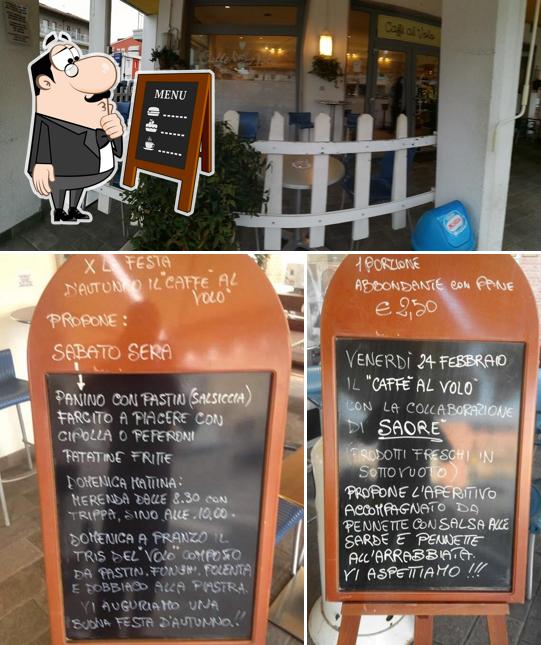 Caffè al Volo
MENU
X LA FESTA
D'AUTUNNO IL "CAFFE' AL
VOLO"
PROPONE:
SABATO SERA
PANINO CON PASTIN (SALSICCIA)
FARCITO A PIACERE CON
CIPOLLA O PEPERONI
PATATINE FRITTE
DOMENICA MATTINA:
MERENDA DALLE 8.30 CON
TRIPPA, SINO ALLE 10,00.
DOMENICA A PRANZO IL
TRIS DEL "VOLO" COMPOSTO
DA PASTIN, FUNGHI, POLENTA
E DOBBIACO ALLA PIASTRA.
VI AUGURIAMO UNA
BUONA FESTA D'AUTUNNO!!
1 PORZIONE
ABBONDANTE CON PANE
€ 2,50
VENERDÌ 24 FEBBRAIO
IL "CAFFE' AL VOLO"
CON LA COLLABORAZIONE
DI "SAORE"
(PRODOTTI FRESCHI IN
SOTTOVUOTO)
PROPONE L'APERITIVO
ACCOMPAGNATO DA
PENNETTE CON SALSA ALLE
SARDE E PENNETTE
ALL'ARRABBIATA.
VI ASPETTIAMO!!!